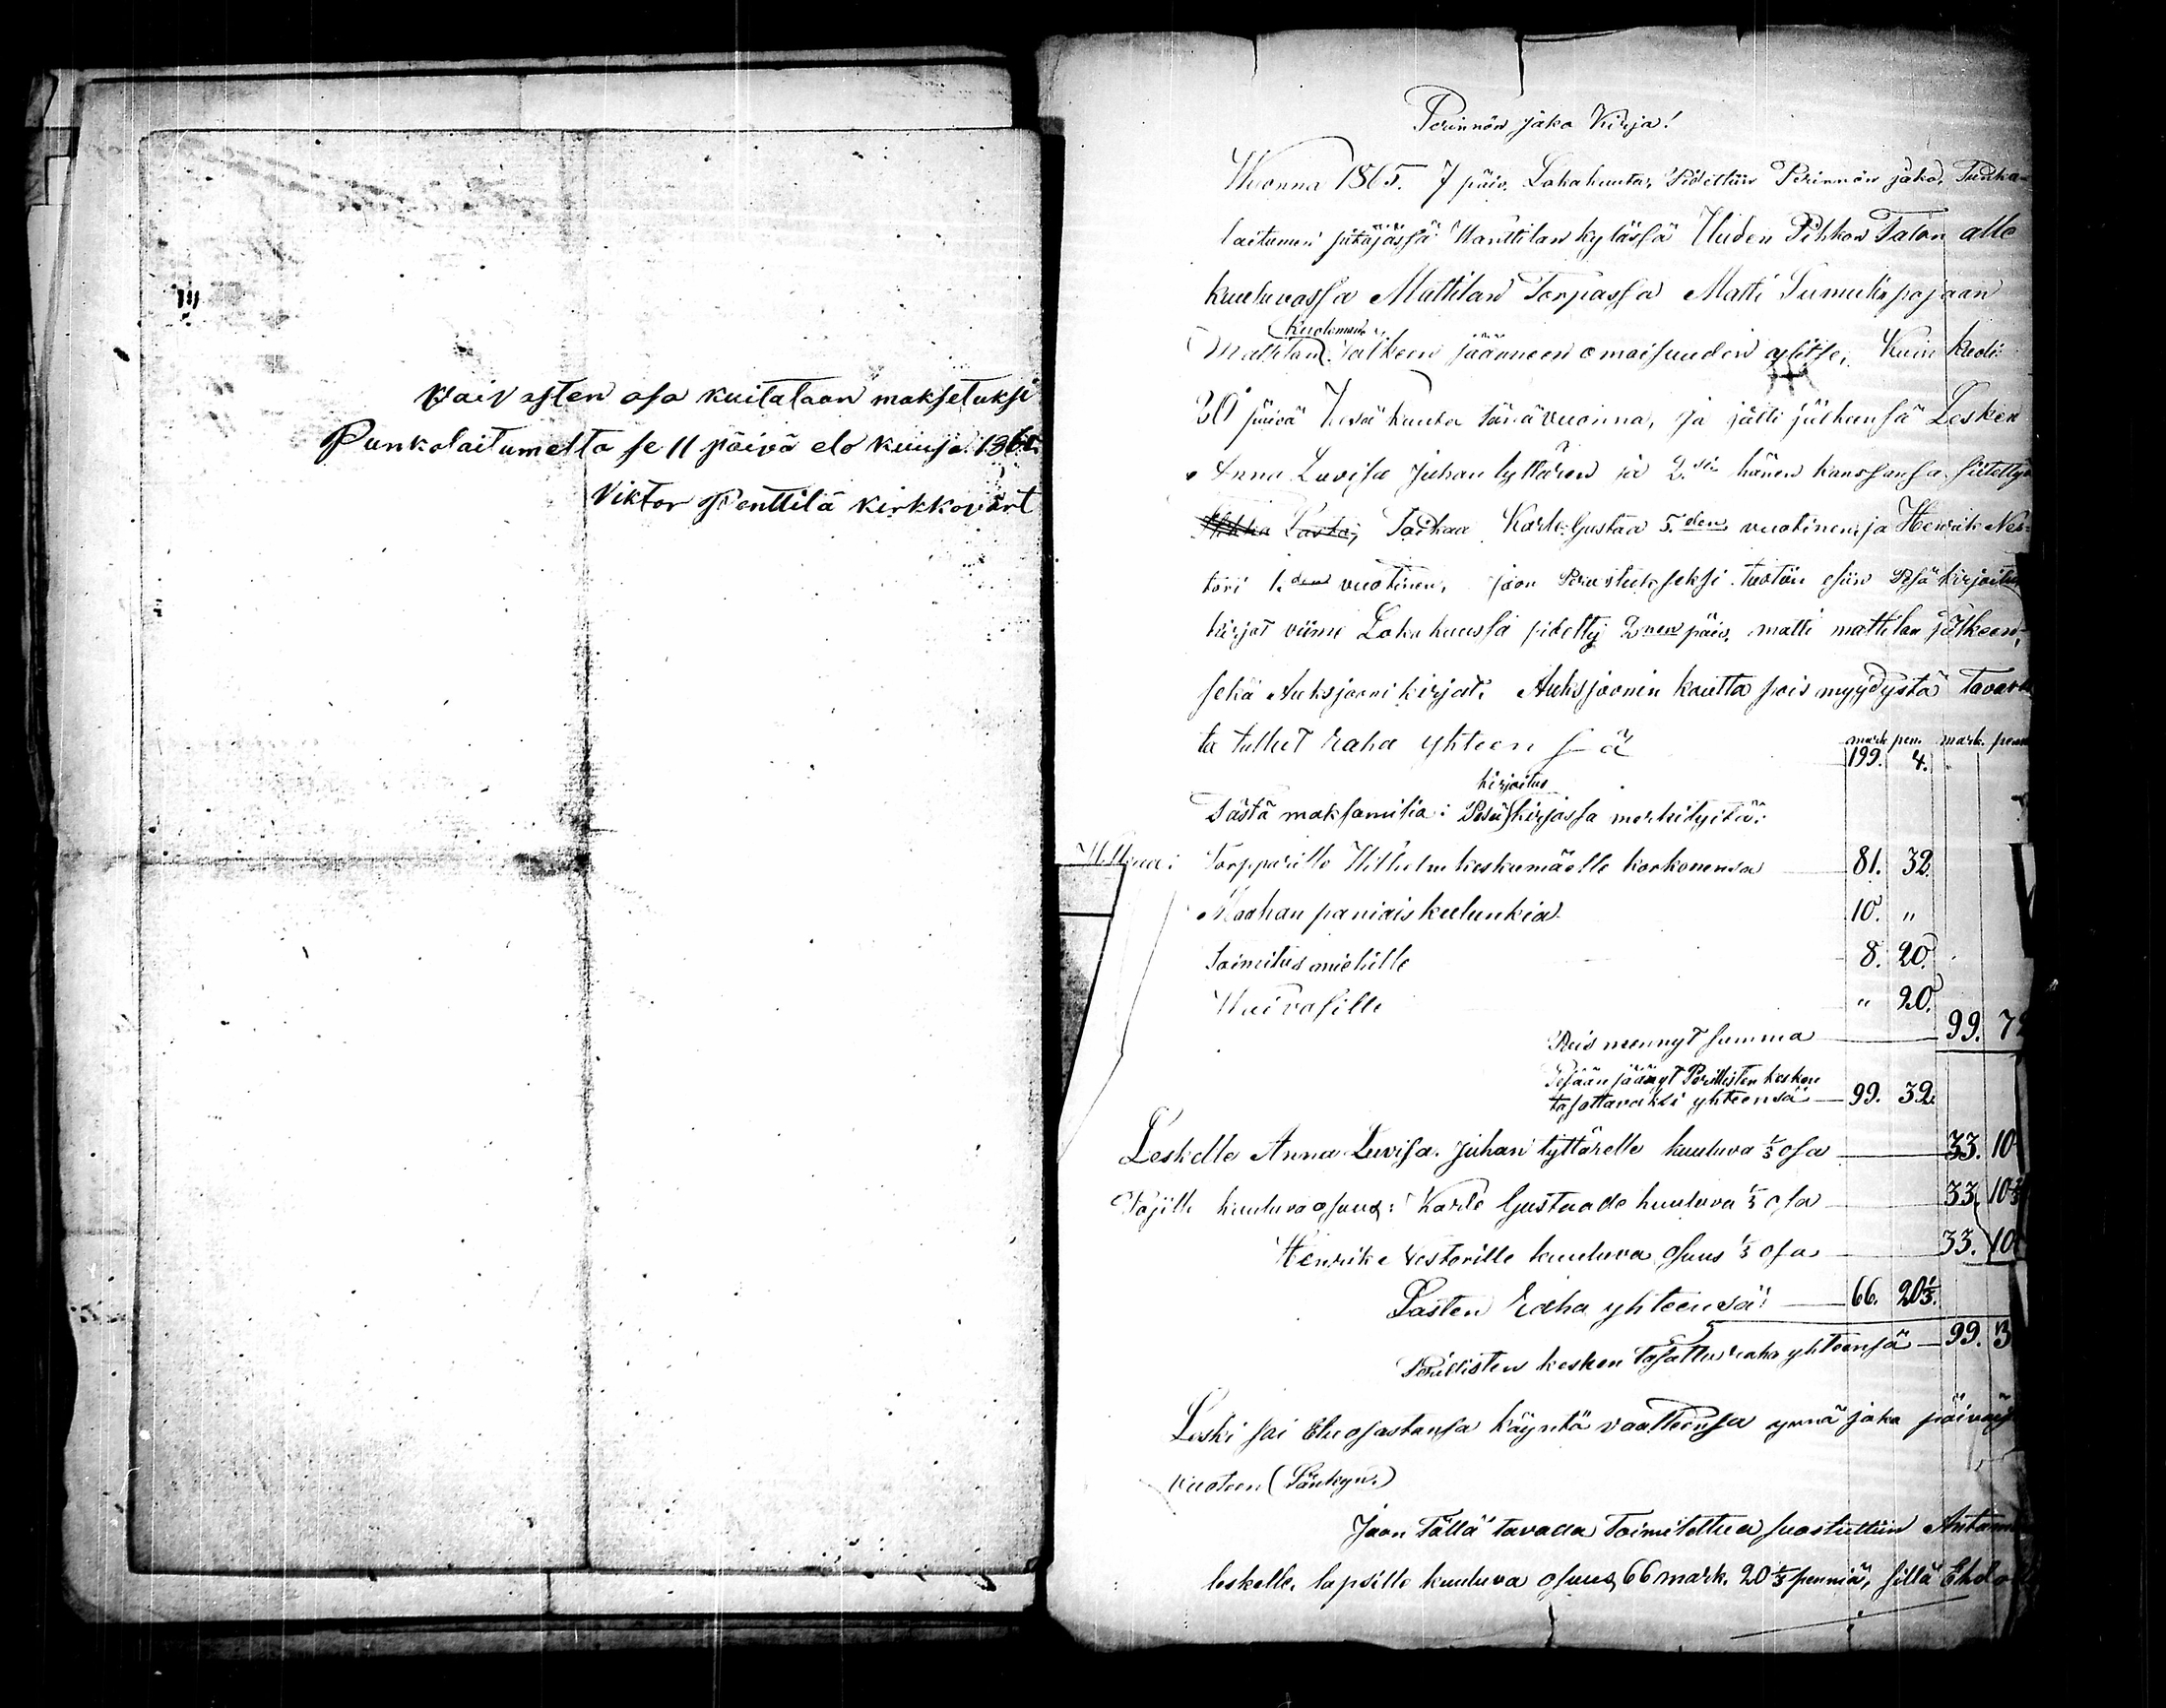 Vaivasten osa kuitataan maksetuksi
Punkalaitumelta se 11 päivä elo kuusa 1865
Viktor Penttilä kirkkovärt
Perinnön jako Kirja!
Wuonna 1865. 7 päiv. Lokakuuta, Pidettiin Perinnön jako, Punka-
laitumen pitäjässä Wanttilan kylässä Uuden Pihkon Talon alle
kuuluvassa Mattilan Torpassa Matti Sumulinpojaan
Mattilan kuoleman jälkeen jäänneen omaisuuden ylitse, Kuin kuoli
20 päivä Kesäkuuta tänä vuonna, ja jätti jälkensä Lesken
Anna Lovisa Juhan tyttären ja 2.si hänen kanssansa siitettyä
Lasta, Poikaa Karle Gustaa 5.den vuotinen ja Henrik Nes-
tori 1.den vuotinen, jaon Perustukseksi tuotiin esiin Pesäkirjoitus
kirjat viime Lokakuussa pidetty 2nen päiv. matti mattilan jälkeen,
sekä Auksjooni kirjat. Auksjoonin kautta pois myydystä tavaras
ta tullut raha yhteen s-ä
mark pen. mark. penn
199. 4.
Tästä maksamisia: Pesäkirjoitus kirjassa merkityitä:
Torpparille Wilhelm keskumäelle korkonensa 81. 32.
Maahan paniais kulunkia 10. "
Toimitus miehille 8. 20.
Waivasille " 20.
Pois mennyt summa 99. 72
Pesään jäänyt Perillisten kesken
tasottavaksi yhteensä 99. 32.
Leskelle Anna Lovisa Juhan tyttärelle kuuluva 1/3 osa 33. 10
Pojille kuuluva osuus: Karle Gustaade kuuluva 1/3 osa 33. 10
Henrike Nestorille kuuluva osuus 1/3 osa 33. 10
Lasten Raha yhteensä: 66. 20 1/3.
Perillisten kesken tasattu raha yhteensä 99. 3
Leski sai Etuosastansa käyntä vaatteensa ynnä joka päiväis
vuoteen (Sänkyn.)
Jaon tällä tavalla toimitettua suostuttiin Antama
leskelle, lapsille kuuluva osuus, 66 mark. 20 1/3 penniä, sillä Ehdo